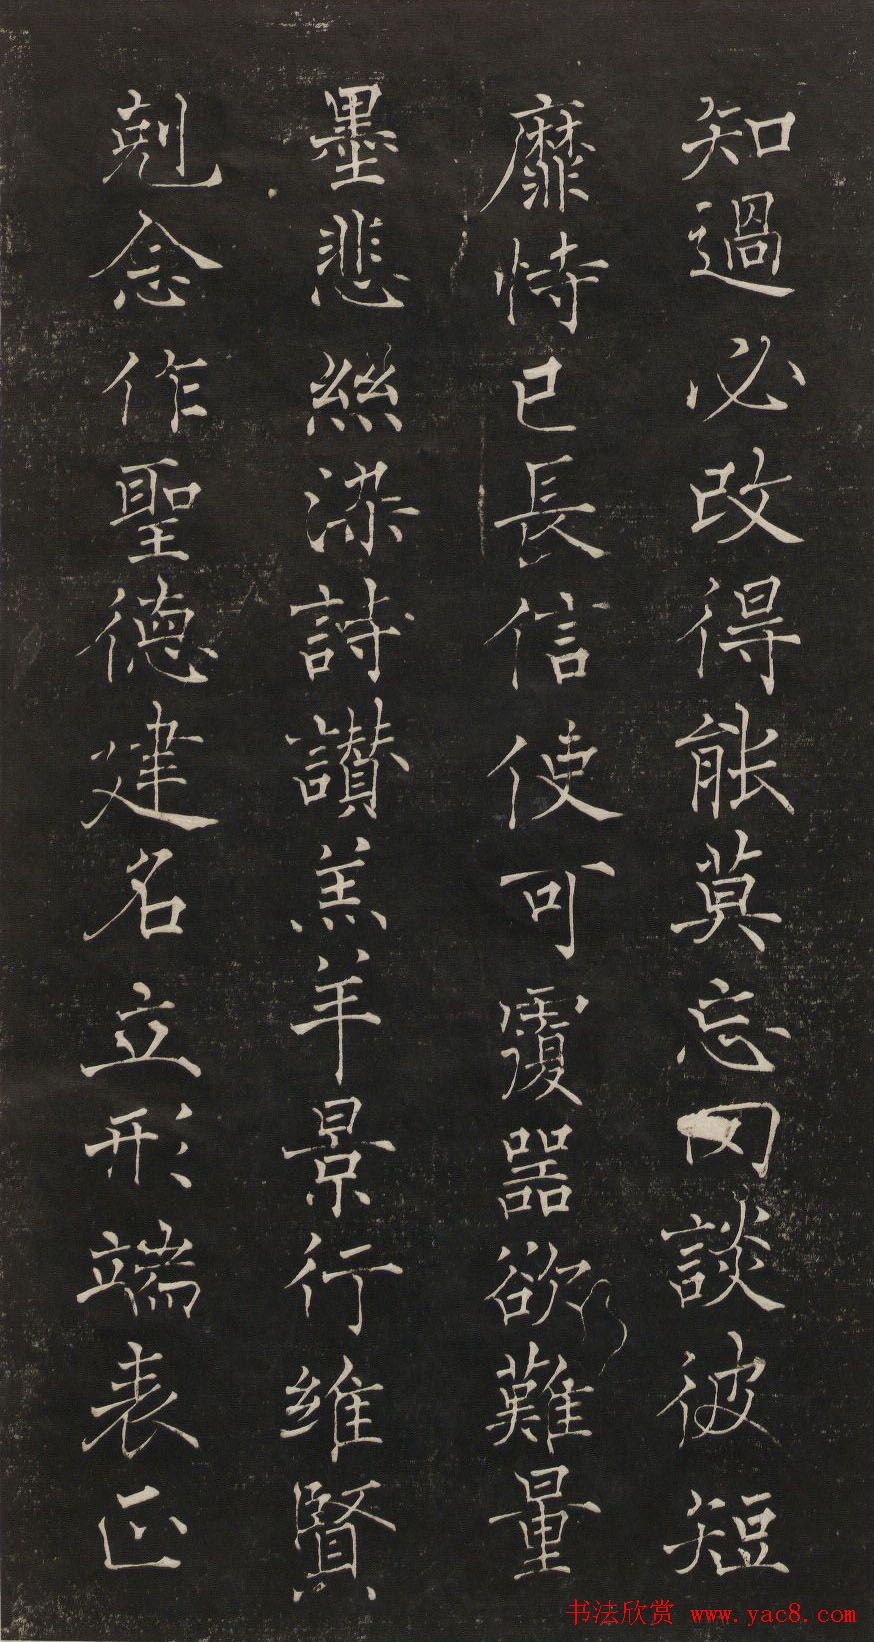 知過必改得能莫忘罔談彼短
靡恃己長信使可覆器欲難量
墨悲絲染詩讚羔羊景行維賢
剋念作聖德建名立形端表正
书法欣赏 www.yac8.com